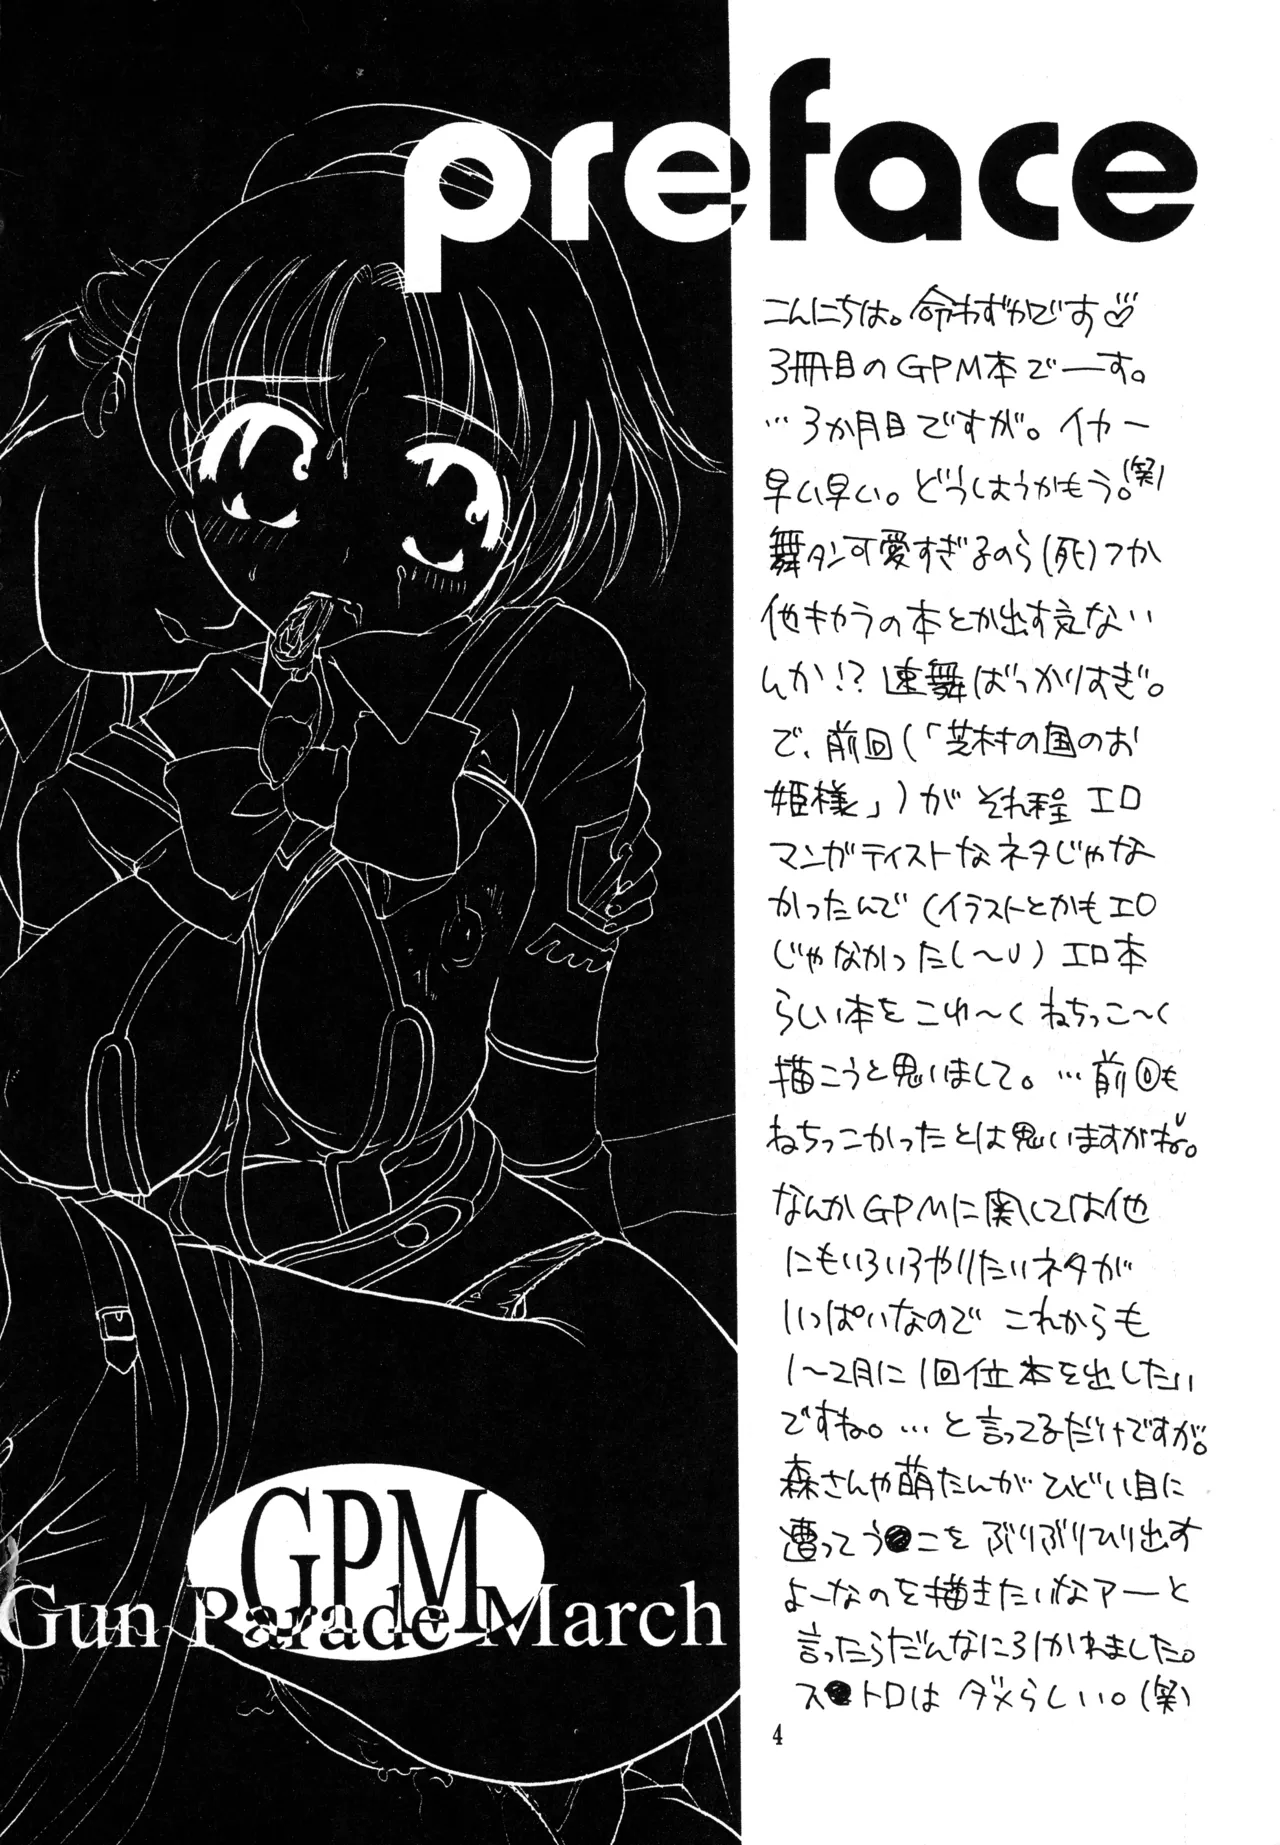 preface
こんにちは。命わずかです♡
3冊目のGPM本でーす。
…3か月目ですが。イカー
早い早い。どうしようかもう。(笑)
舞タン可愛すぎるのら(死)つか
他キャラの本とか出す気ない
んか!? 速舞ばっかりすぎ。
で、前回(「芝村の国のお
姫様」)が それ程 エロ
マンガテイストなネタじゃな
かったんで(イラストとかもエロ
じゃなかった(〜し) エロ本
らしい本を こゆ〜く ねちっこ〜く
描こうと思いまして。…前回も
ねちっこかったとは思いますがね。
なんかGPMに関しては他
にもいろいろやりたいネタが
いっぱいなので これからも
1〜2月に1回位本を出したい
ですね。…と言ってるだけですが。
森さんや萌たんが ひどい目に
遭ってう●こを ぶりぶりひり出す
よーなのを描きたいなアーと
言ったらだんなに引かれました。
ス●トロは ダメらしい。(笑)
GPM
Gun Parade March
4